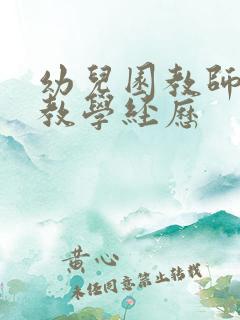 幼兒園教師
教學经歷
黄心
未经同意禁止转载